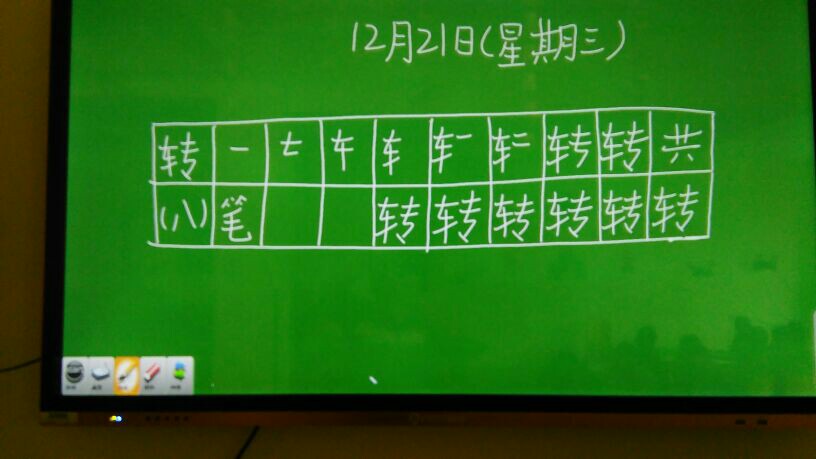 12月21日(星期三)
转 一 车 车一 车二 转 转 共
(八) 笔 转 转 转 转 转 转